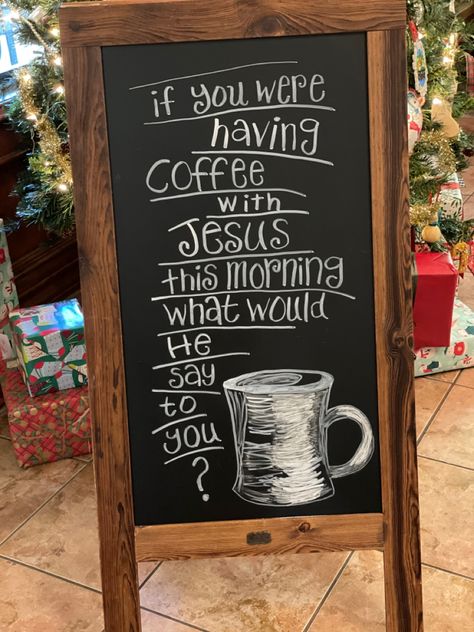 if you were
having
coffee
with
Jesus
this morning
what would
He
say
to
you
?